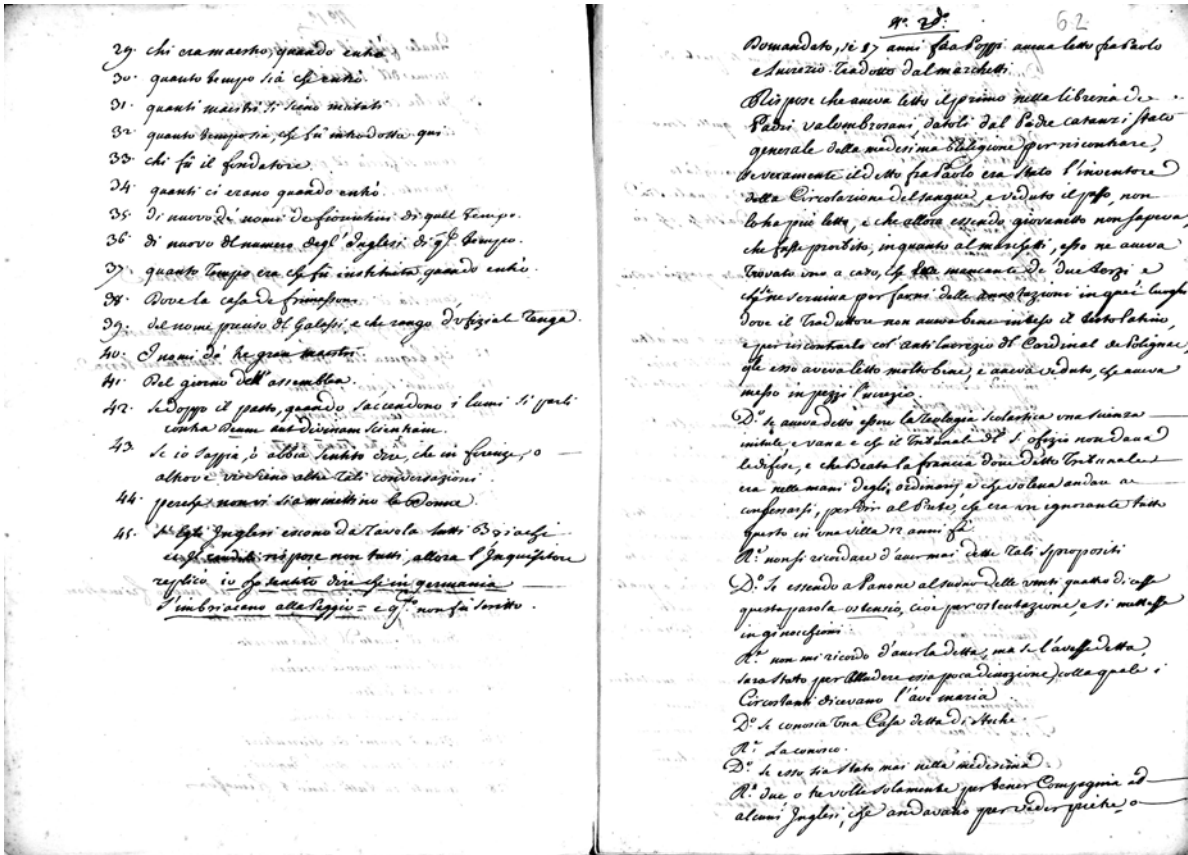 29. chi era maestro, quando entrò
30. quanto tempo sia che entrò
31. quanti maestri si sieno mutati
32. quanto tempo sia, che fù introdotta qui
33. chi fù il fondatore
34. quanti ci erano quando entrò.
35. di nuovo de' nomi de fiorentini di quell Tempo.
36. di nuovo del numero degl' Inglesi di q.l tempo.
37. quanto Tempo era che fù instituita, quando entrò.
38. Dove la casa de frimessoni
39. del nome preciso del Galassi, e che rango d'ufizial Tenga.
40. I nomi de tre gran maestri
41. Del giorno dell' assemblea.
42. Se doppo il pasto, quando s'accendono i lumi si parli
contra Deum aut divinam scientiam.
43. Se io sappia, o abbia sentito dire, che in firenze, o
altrove vi sieno altre Tali conversazioni.
44. perche non vi si ammettino le Donne
45. Se gli Inglesi escono da Tavola tutti Briachi
rispose non tutti, allora l'Inquisitore
replicò io ho sentito dire che in germania
s'imbriacano alla Peggio = e q.to non fù scritto.
N.o 2.do
62
Domandato, se 17 anni fa a Poppi aveva letto fra Paolo
e Lucrezio Tradotto dal marchetti
Rispose che aveva letto il primo nella libreria de
Padri valombrosani, datoli dal Padre stato
generale della medesima Religione per riscontrare,
se veramente il detto fra Paolo era stato l'inventore
della Circolazione del sangue, e veduto il passo, non
lo ha più letto, e che allora essendo giovanetto non sapeva,
che fusse proibito, in quanto al marchetti, esso ne aveva
trovato uno a caso, che mancante de' due terzi e
che ne serviva per farvi delle annotazioni in quei luoghi
dove il Traduttore non aveva bene inteso il testo Latino,
e per riscontrarlo col' anti lucrezio del Cardinal de Polignac,
q.le esso aveva letto molto bene, e aveva veduto, che aveva
messo in pezzi Lucrezio.
D.o se aveva detto essere la Teologia scolastica una scienza
inutile e vana e che il Tribunale del S. ofizio non dava
le difese, e che Beata la francia dove detto Tribunale
era nelle mani degli ordinarj, e che voleva andare a
confessarsi, per dir al Prete, che era un ignorante tutto
questo in una villa 12 anni fa
R.e non si ricordare d'aver mai dette tali spropositi
D.o Se essendo a Panone al suono delle venti quattro dicesse
questa parola ostensio, cioè per ostentazione, e si mettesse
in ginocchioni
R.e non mi ricordo d'averla detta, ma se l'avesse detta,
sarà stato per alludere poca divozione, colla quale i
Circostanti dicevano l'ave maria
D.o Se conosca una Casa detta di Stoche.
R.e La conosco.
D.o Se esso sia stato mai nella medesima.
R.e due o tre volte solamente per tener Compagnia ad
alcuni Inglesi, che andavano per veder pietre o